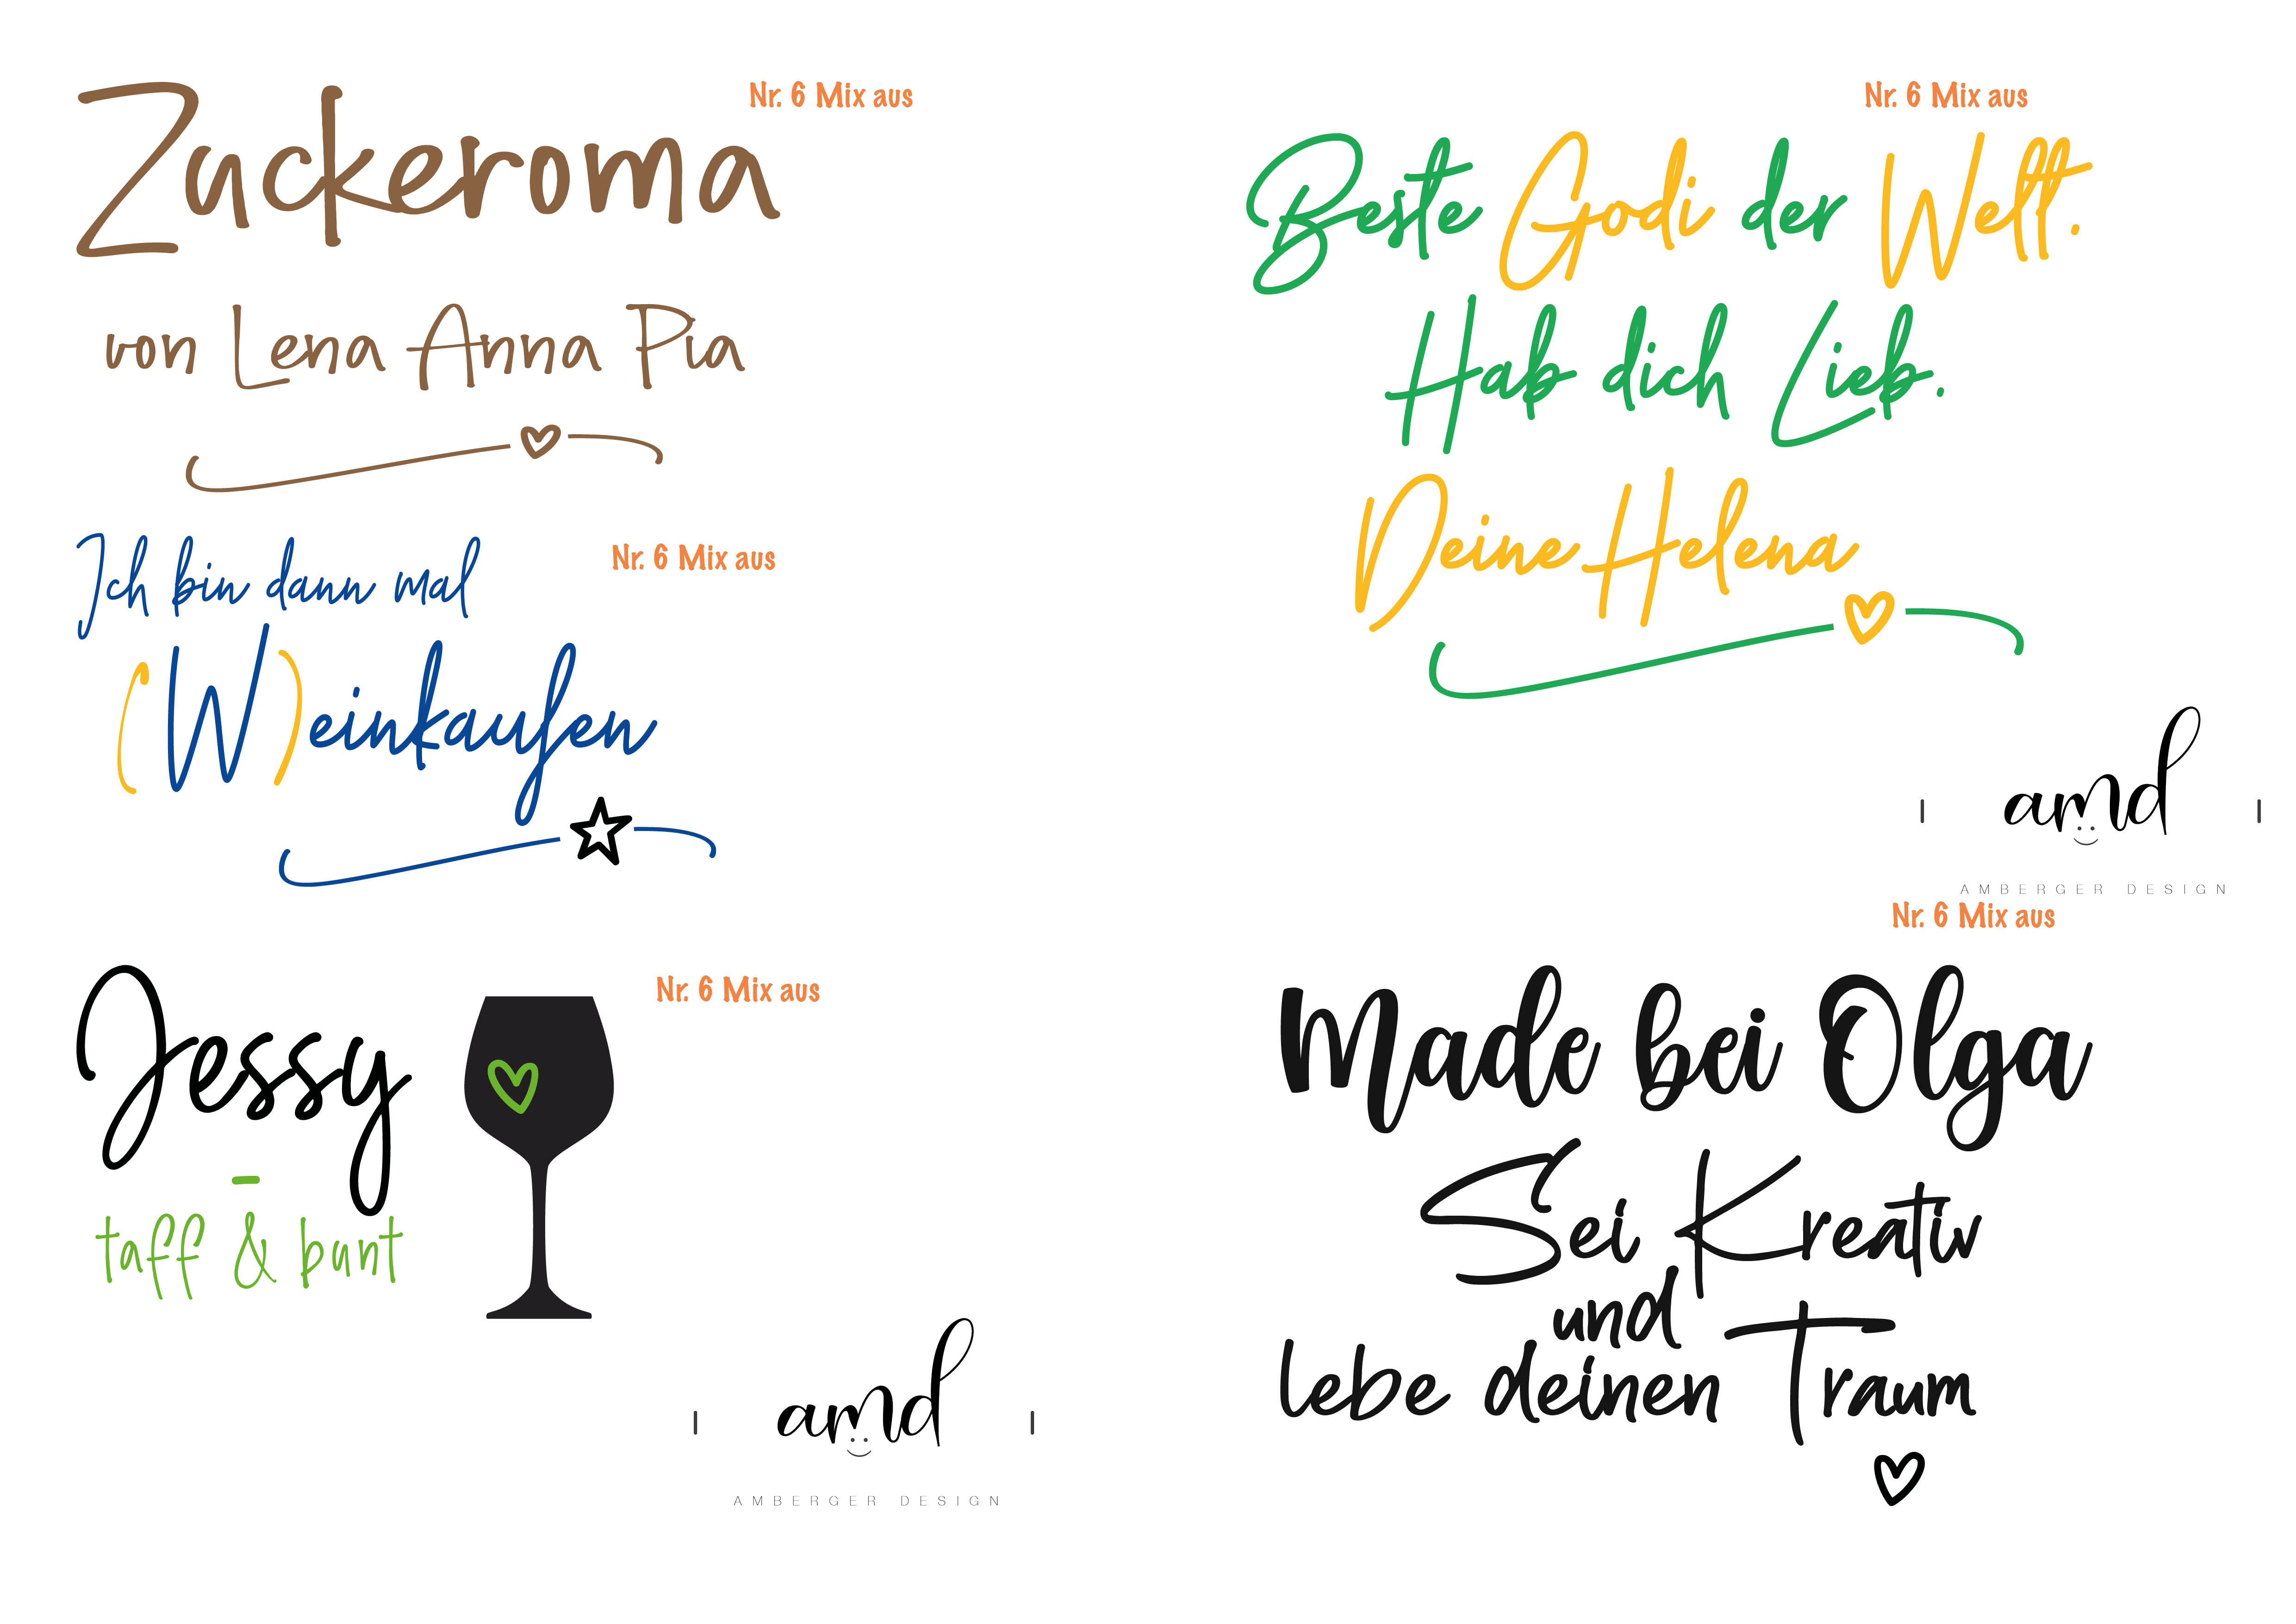 Nr. 6 Mix aus
Zuckeroma
von Lena Anna Pia
Nr. 6 Mix aus
Ich bin dann mal
(W)einkaufen
Nr. 6 Mix aus
Jessy
taff & bunt
amd
AMBERGER DESIGN
Nr. 6 Mix aus
Beste Godi der Welt.
Hab dich Lieb.
Deine Helena
amd
AMBERGER DESIGN
Nr. 6 Mix aus
Made bei Olga
Sei Kreativ
und
lebe deinen Traum